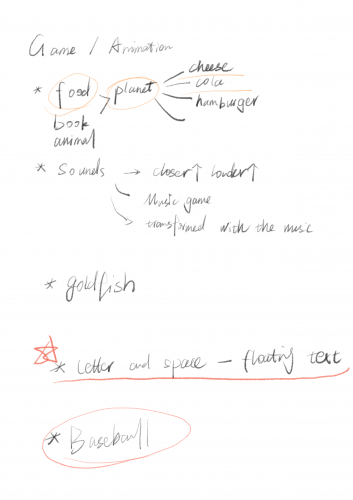 Game / Animation
* food > planet
cheese
cola
hamburger
book
animal
* sounds → closer↑ louder↑
Music game
transformed with the music
* goldfish
* Letter and space – floating text
* Baseball